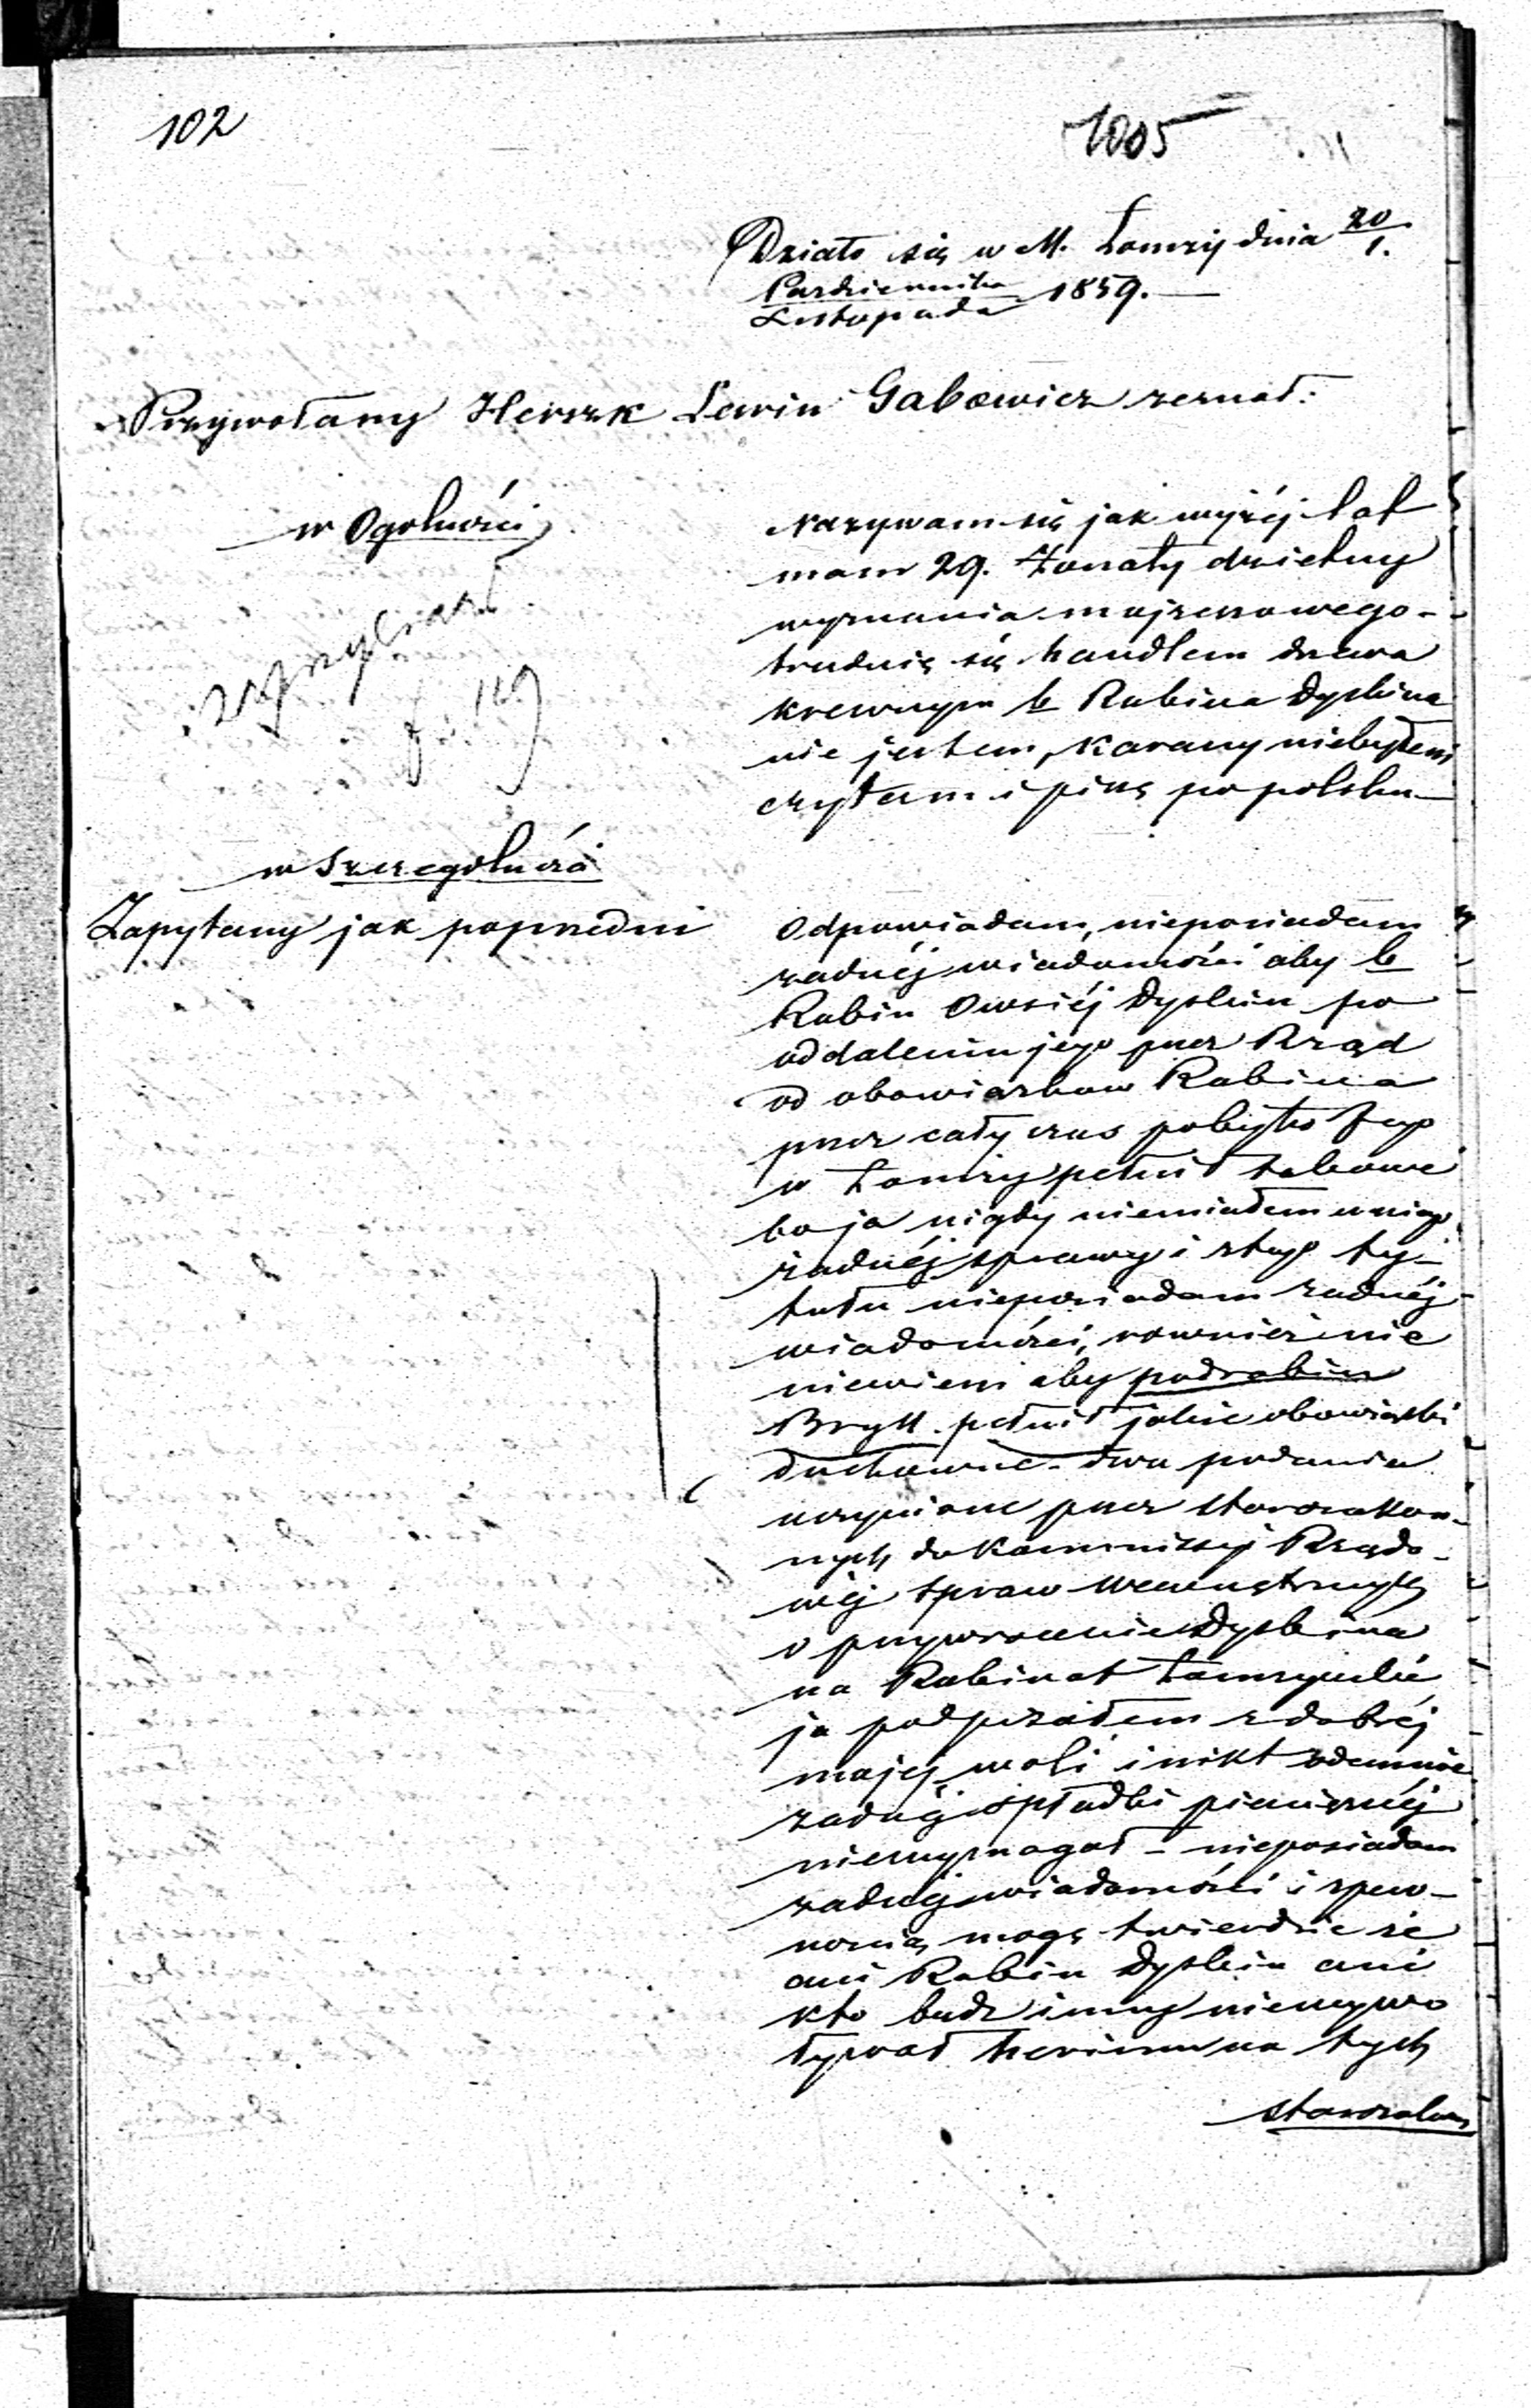 102
1005
Działo się w M. Łomży dnia 20/1.
Pazdziernika/Listopada 1859.
Przywołany Herszk Lewin Gabowicz zeznał:
w Ogolności
Nazywam się jak wyżéj lat
mam 29. Żonaty dzietny
wyznania mojżeszowego -
trudnię się handlem drzewa
krewnym b Rabina Dyskina
nie jestem, Karany niebyłem
czytam i piszę po polsku
w Szczególności
Zapytany jak poprzedni
Odpowiadam, nieposiadam
żadnéj wiadomości aby b
Rabin Owsiéj Dyskin po
oddaleniu jego przez Rząd
od obowiązkow Rabina
przez cały czas pobytu Jego
w Łomży pełnił takowe
bo ja nigdy niemiałem u niego
żadnéj sprawy i z tego ty-
tułu nieposiadam żadnéj
wiadomości, rownież nie
niewiem aby podrabin
Bryll pełnił jakie obowiązki
duchowne - dwa podania
uczynione przez starozakon-
nych do Kommissyi Rządo-
wéj Spraw Wewnętrznych
o przywrocenie Dyskina
na Rabinat Łomżyński
ja podpisałem z dobréj
mojej woli i nikt odemnie
żadnéj składki pieniężnéj
niewymagał - nieposiadam
żadnéj wiadomości i z pew-
nością mogę twierdzić że
ani Rabin Dyskin ani
kto bądź inny niewywo
ływał herimu na tych
starozakon